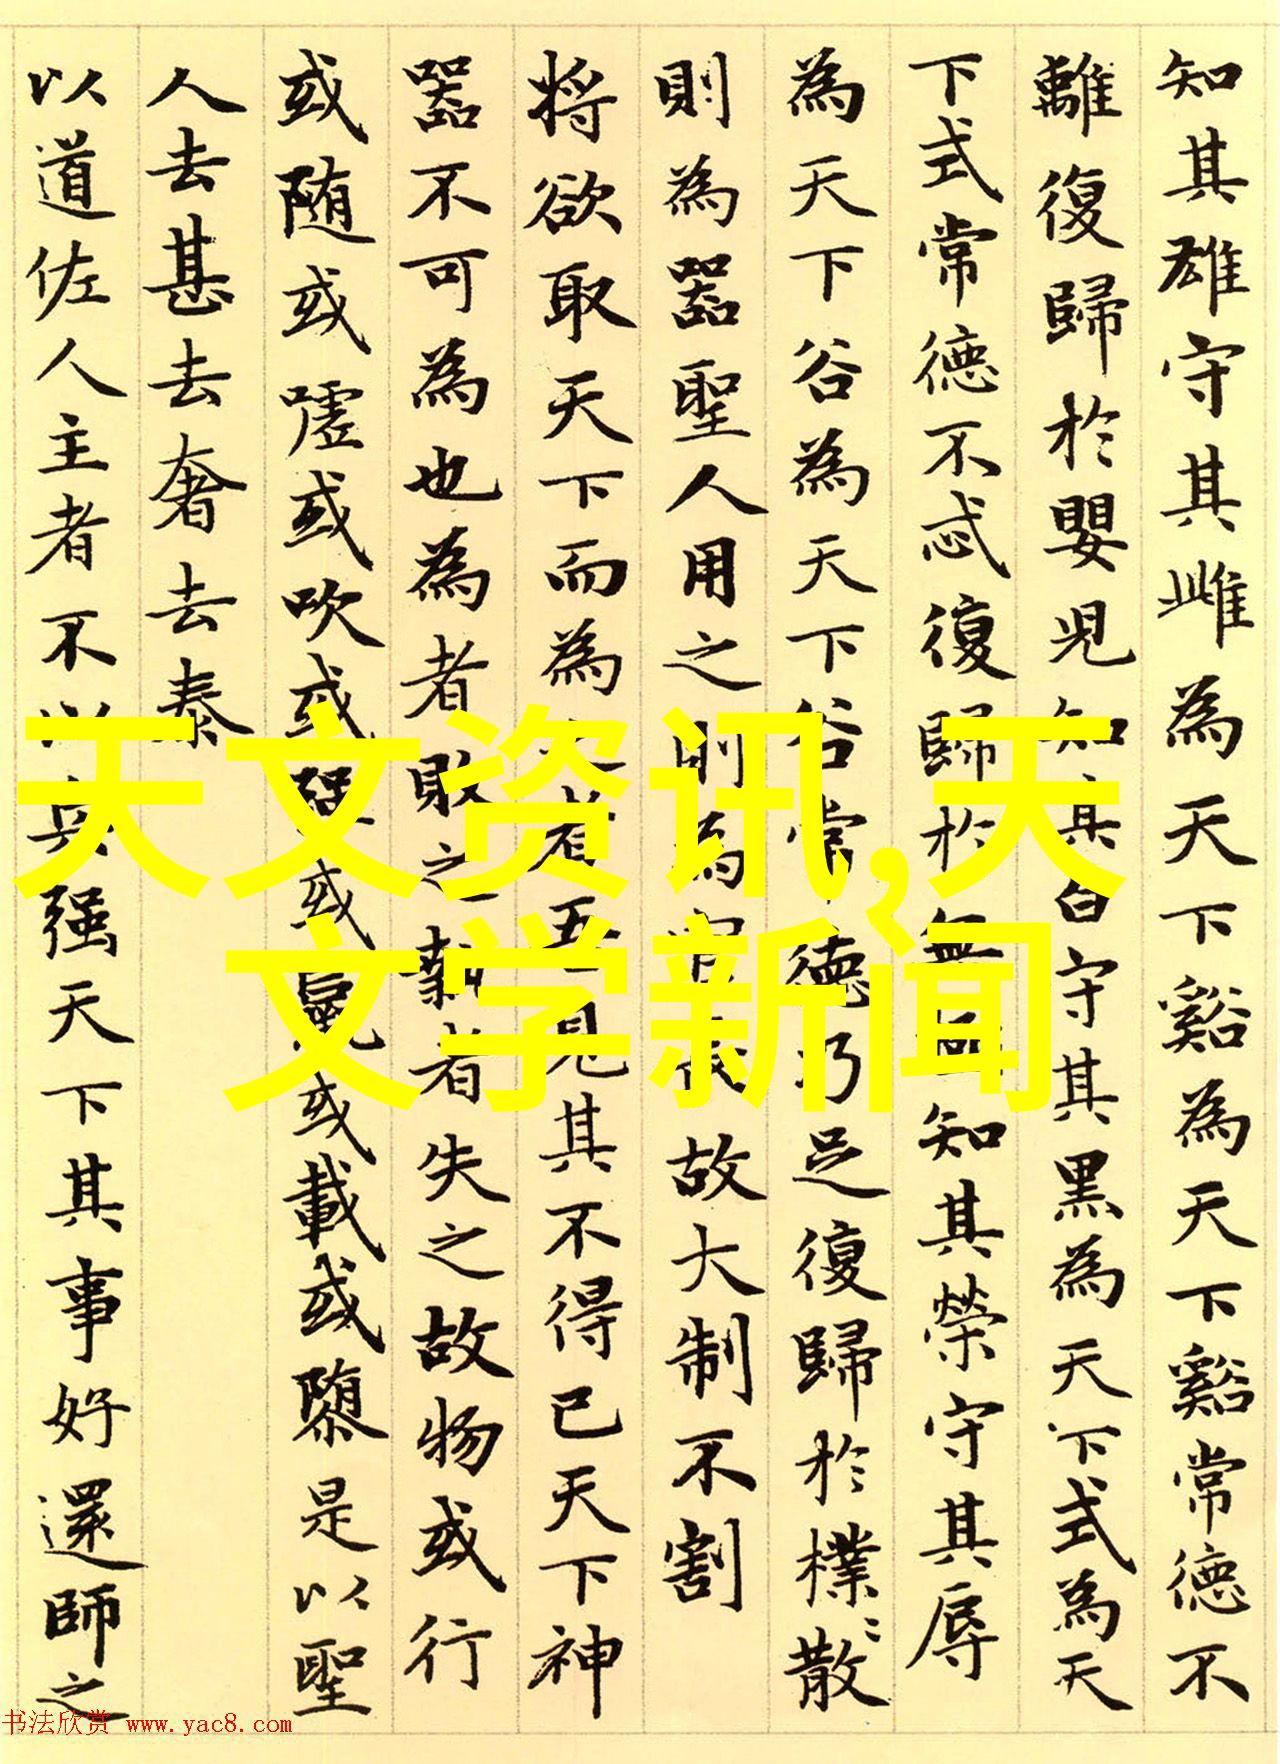 知其雄守其雌為天下谿為天下谿常德不
離復歸於嬰兒知其白守其黑為天下式為天
下式常德不忒復歸於無極知其榮守其辱
為天下谷為天下谷常德乃足復歸於樸〻散
則為器聖人用之則為官長故大制不割
将欲取天下而為之者吾見其不得已天下神
器不可為也為者敗之執者失之故物或行
或随或嘘或吹或强或羸或載或隳是以聖
人去甚去奢去泰
以道佐人主者不以兵强天下其事好還師之
天文资讯,天
文学新闻
书法欣赏 www.yac8.com